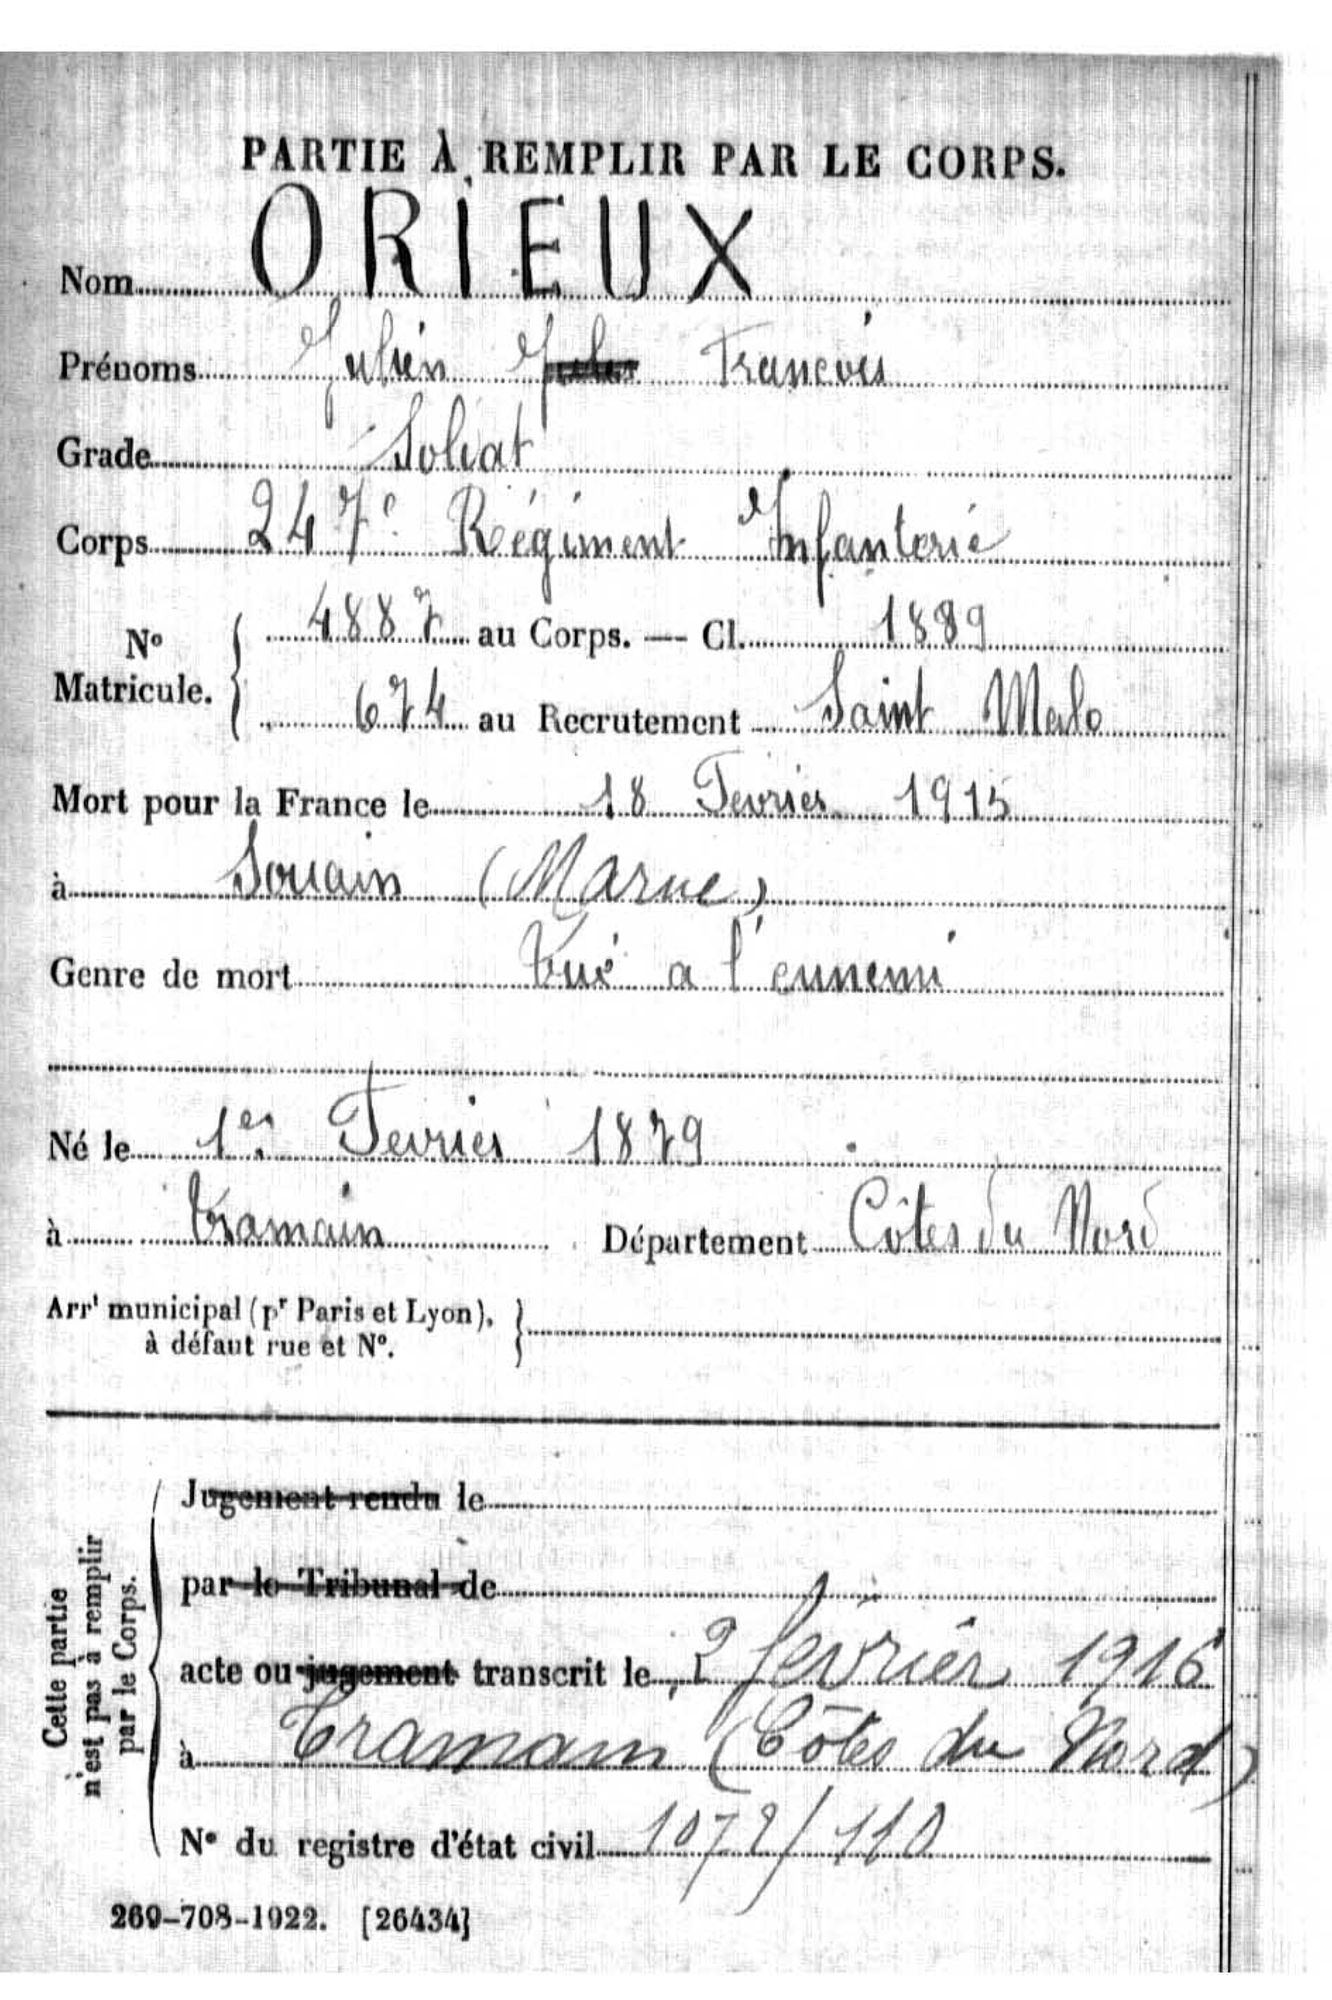 PARTIE À REMPLIR PAR LE CORPS.
Nom ORIEUX
Prénoms Julien Jules Francois
Grade Soldat
Corps 247e Régiment Infanterie
N° Matricule. 4887 au Corps. — Cl. 1889
674 au Recrutement Saint Malo
Mort pour la France le 18 Fevrier 1915
à Souain (Marne)
Genre de mort Tué a l'ennemi
Né le 1er Fevrier 1879
à Tramain Département Côtes du Nord
Arrt municipal (pr Paris et Lyon),
à défaut rue et N°.
Jugement rendu le
par le Tribunal de
acte ou jugement transcrit le 2 février 1916
à Tramain (Côtes du Nord)
N° du registre d'état civil 1072/110
Cette partie
n'est pas à remplir
par le Corps.
269-708-1922. [26434]